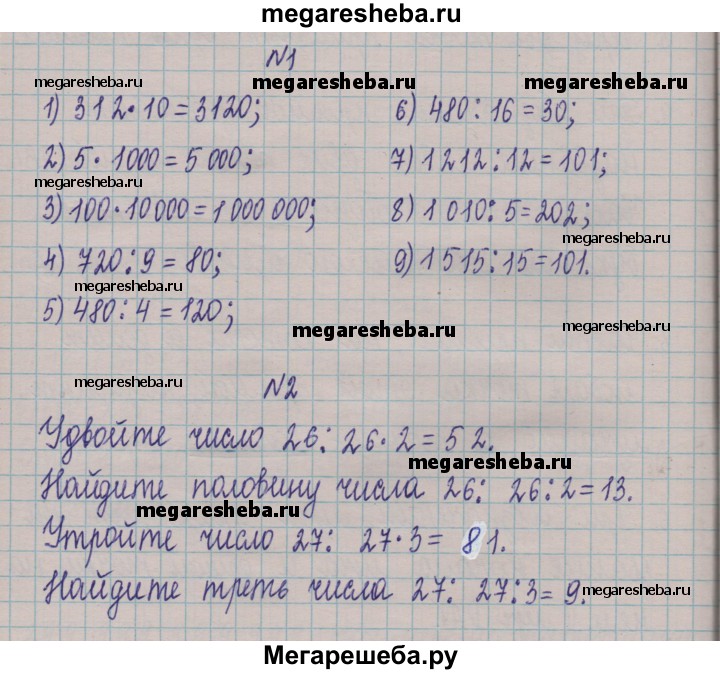 megaresheba.ru
N1
megaresheba.ru megaresheba.ru megaresheba.ru
1) 312·10=3120; 6) 480:16=30;
2) 5·1000=5000; 7) 1212:12=101;
megaresheba.ru
3) 100·10000=1000000; 8) 1010:5=202;
megaresheba.ru
4) 720:9=80; 9) 1515:15=101.
megaresheba.ru
5) 480:4=120;
megaresheba.ru megaresheba.ru
megaresheba.ru N2
Удвойте число 26: 26·2=52.
megaresheba.ru
Найдите половину числа 26: 26:2=13.
megaresheba.ru
Утройте число 27: 27·3= 81.
Найдите треть числа 27: 27:3= 9.
megaresheba.ru
Мегарешеба.ру